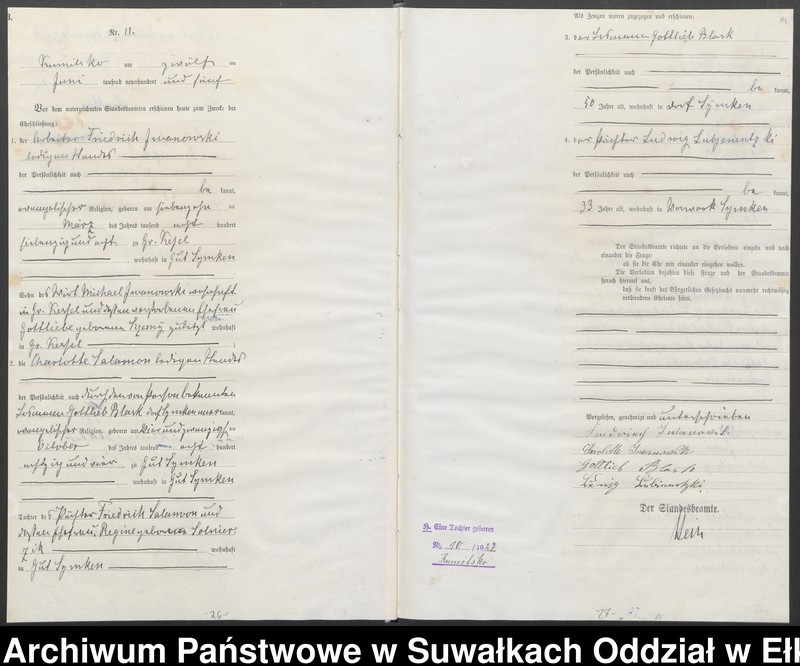 B.
Nr. 11.
Kumilsko am zwölf ten
Juni tausend neunhundert und fünf
Vor dem unterzeichneten Standesbeamten erschienen heute zum Zwecke der
Eheschließung:
1. der Arbeiter Friedrich Iwanowski
ledigen Standes
der Persönlichkeit nach
be kannt,
evangelischer Religion, geboren am siebenzehn ten
März des Jahres tausend acht hundert
siebenzig und acht zu Gr. Kessel
, wohnhaft in Gut Symken
Sohn des Wirt Michael Iwanowski wohnhaft
in Gr. Kessel und dessen verstorbenen Ehefrau
Gottliebe geborenen zuletzt wohnhaft
in Gr. Kessel ;
2. die Charlotte Salamon ledigen Standes
der Persönlichkeit nach durch den von Person bekannten
Losmann Gottlieb Black Dorf Symken anerkannt,
evangelischer Religion, geboren am vierundzwanzigsten
October des Jahres tausend acht hundert
achtzig und vier zu Gut Symken
, wohnhaft in Gut Symken
Tochter des Pächter Friedrich Salamon und
dessen Ehefrau, Regine geborene
wohnhaft
in Gut Symken
26
Als Zeugen waren zugezogen und erschienen:
3. der Losmann Gottlieb Black
der Persönlichkeit nach
be kannt,
50 Jahre alt, wohnhaft in Dorf Symken
4. der Pächter Ludwig
der Persönlichkeit nach
be kannt,
33 Jahre alt, wohnhaft in Vorwerk Symken
Der Standesbeamte richtete an die Verlobten einzeln und nach
einander die Frage:
ob sie die Ehe mit einander eingehen wollen.
Die Verlobten bejahten diese Frage und der Standesbeamte
sprach hierauf aus,
daß sie kraft des Bürgerlichen Gesetzbuchs nunmehr rechtmäßig
verbundene Eheleute seien.
Vorgelesen, genehmigt und unterschrieben
Friedrich Iwanowski
Charlotte Iwanowski
Gottlieb Black
Der Standesbeamte.
H. Eine Tochter geboren
Nr. 10 /1927
Kumilsko
27
Archiwum Państwowe w Suwałkach Oddział w Eł